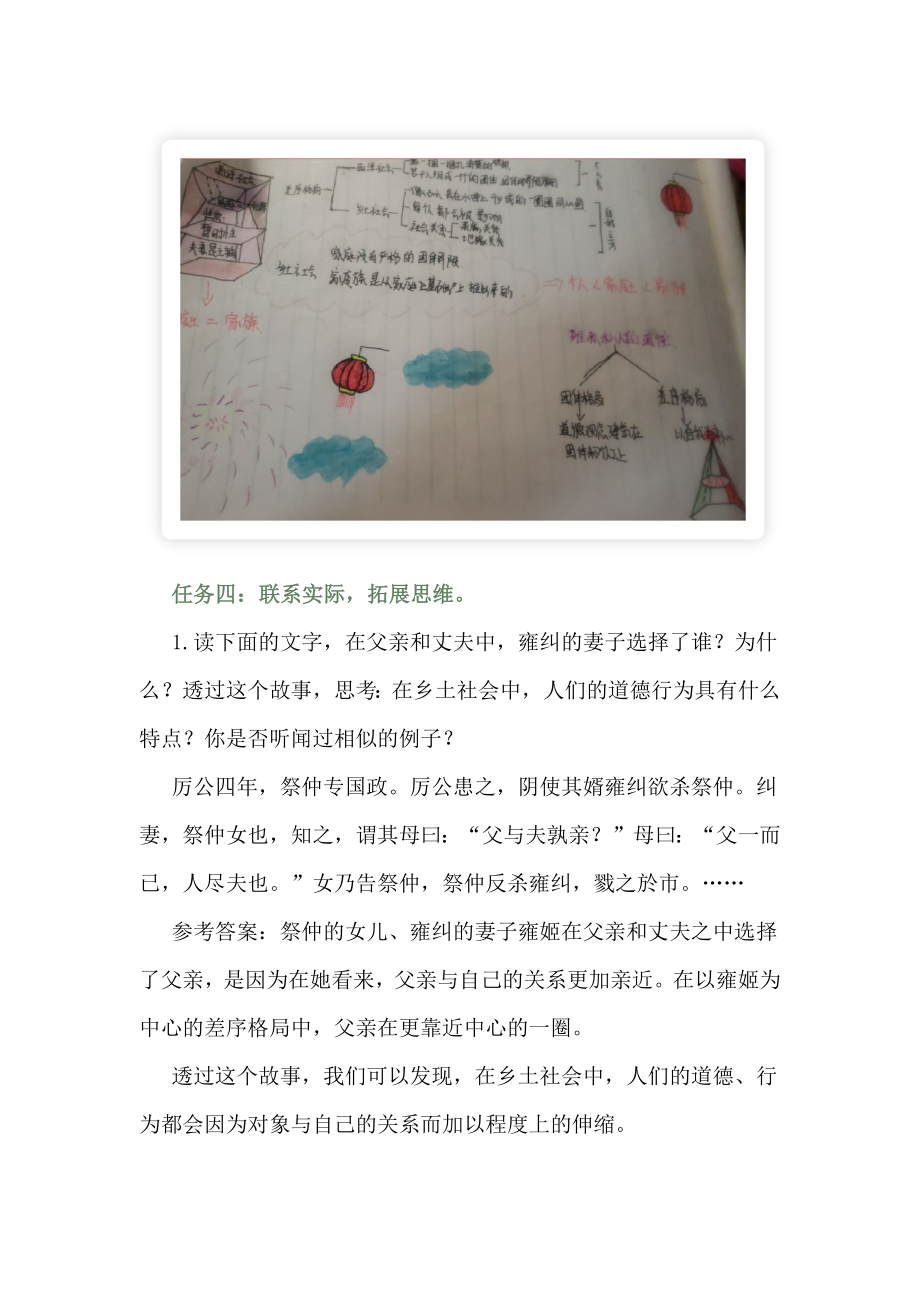 西洋社会
差序格局
乡土社会
每个人都会被影响
社会关系
自我主义
夫妻是主轴
乡土社会
家庭没有严格的团体界限
⇒ 个人〈家庭〈家族
= 家族
团体格局
差序格局
道德观念建立在
团体和个人上
任务四：联系实际，拓展思维。
1.读下面的文字，在父亲和丈夫中，雍纠的妻子选择了谁？为什
么？透过这个故事，思考：在乡土社会中，人们的道德行为具有什么
特点？你是否听闻过相似的例子？
厉公四年，祭仲专国政。厉公患之，阴使其婿雍纠欲杀祭仲。纠
妻，祭仲女也，知之，谓其母曰：“父与夫孰亲？”母曰：“父一而
已，人尽夫也。”女乃告祭仲，祭仲反杀雍纠，戮之於市。……
参考答案：祭仲的女儿、雍纠的妻子雍姬在父亲和丈夫之中选择
了父亲，是因为在她看来，父亲与自己的关系更加亲近。在以雍姬为
中心的差序格局中，父亲在更靠近中心的一圈。
透过这个故事，我们可以发现，在乡土社会中，人们的道德、行
为都会因为对象与自己的关系而加以程度上的伸缩。